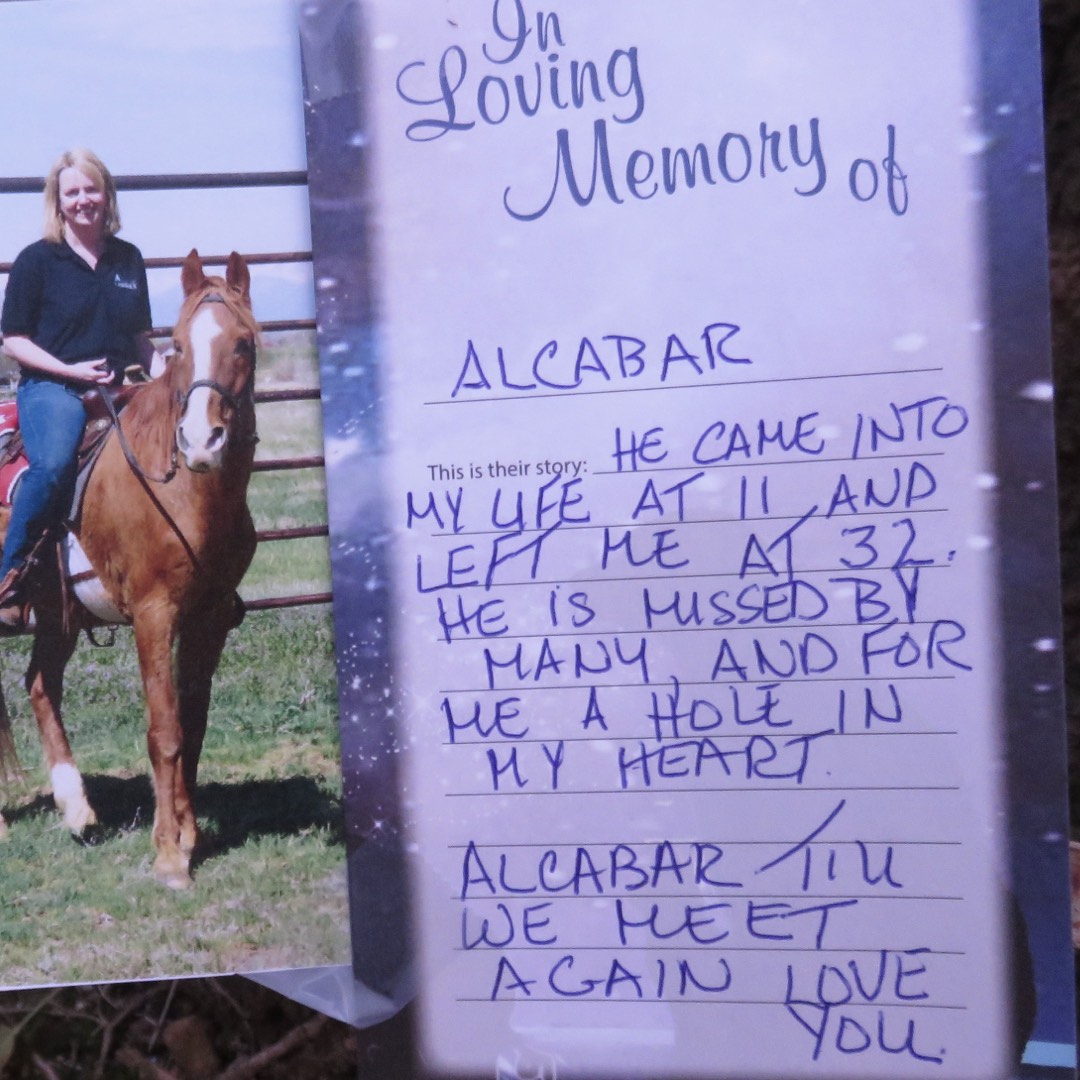 In
Loving
Memory of
ALCABAR
This is their story: HE CAME INTO
MY LIFE AT 11 AND
LEFT ME AT 32.
HE IS MISSED BY
MANY, AND FOR
ME A HOLE IN
MY HEART.
ALCABAR TILL
WE MEET
AGAIN LOVE
YOU.